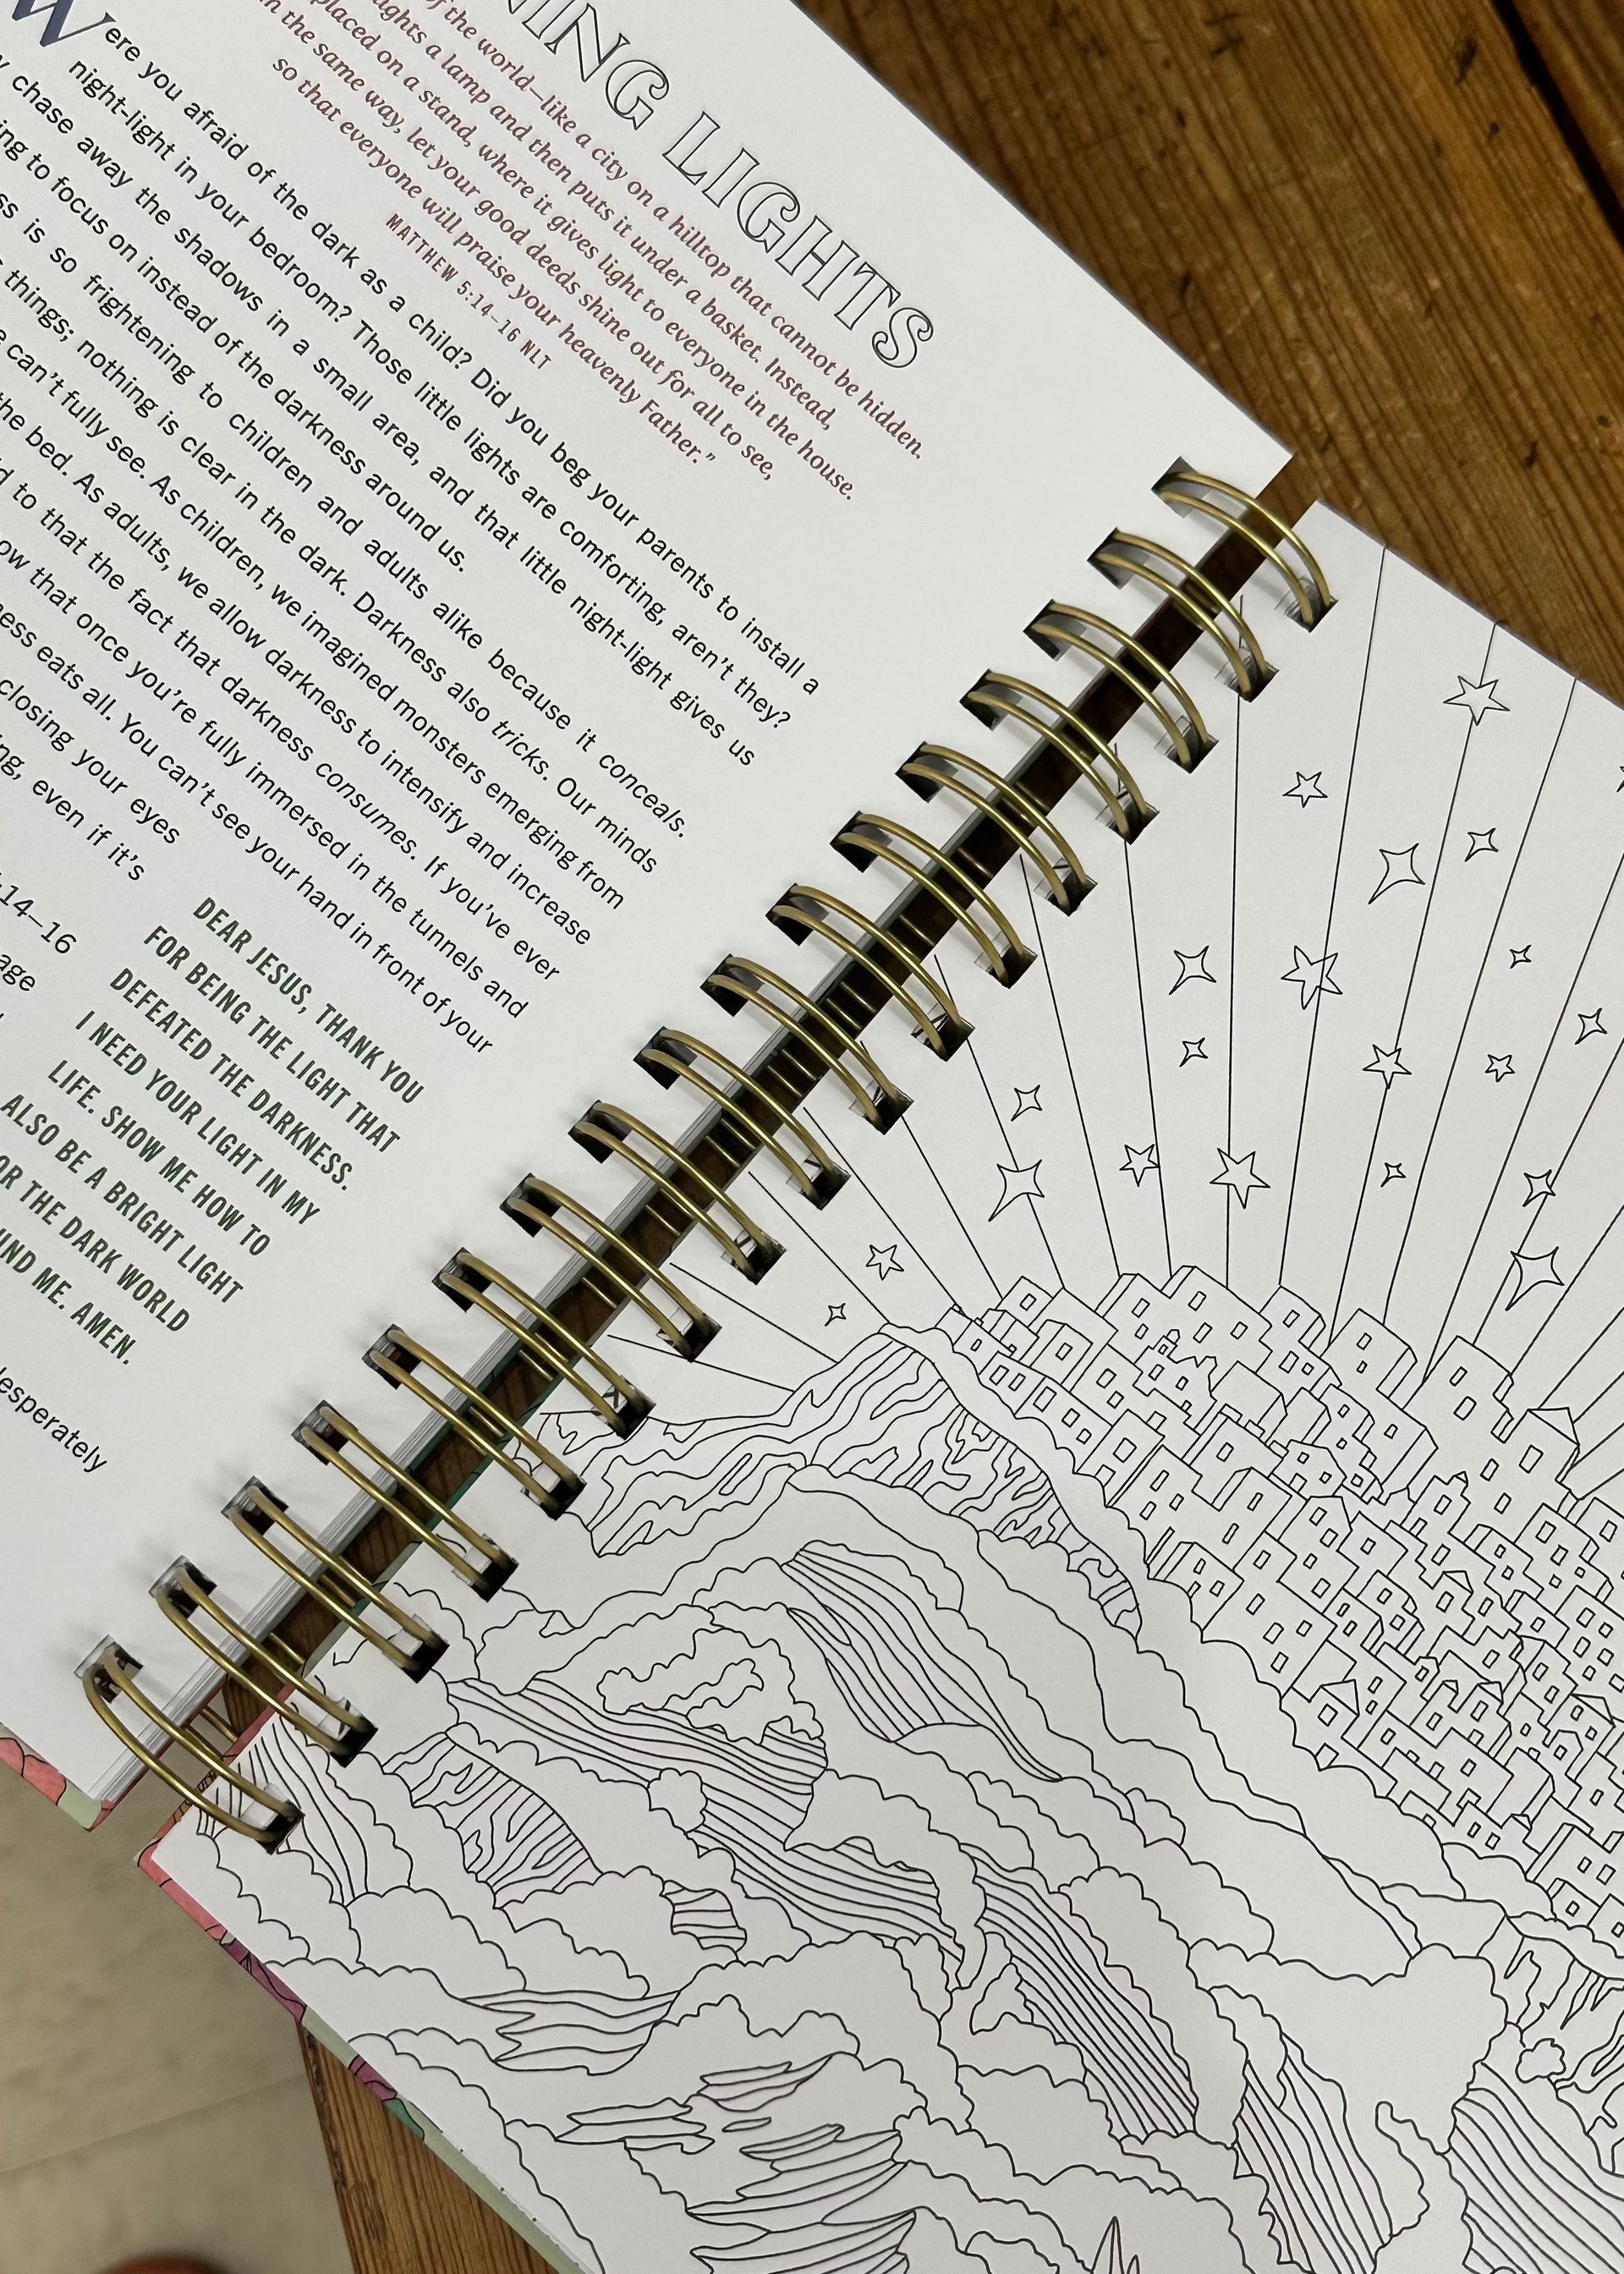 LIGHTS
of the world—like a city on a hilltop that cannot be hidden.
lights a lamp and then puts it under a basket. Instead,
placed on a stand, where it gives light to everyone in the house.
the same way, let your good deeds shine out for all to see,
so that everyone will praise your heavenly Father.”
MATTHEW 5:14–16 NLT
Were you afraid of the dark as a child? Did you beg your parents to install a
night-light in your bedroom? Those little lights are comforting, aren’t they?
chase away the shadows in a small area, and that little night-light gives us
to focus on instead of the darkness around us.
is so frightening to children and adults alike because it conceals.
things; nothing is clear in the dark. Darkness also tricks. Our minds
can’t fully see. As children, we imagined monsters emerging from
the bed. As adults, we allow darkness to intensify and increase
to that the fact that darkness consumes. If you’ve ever
that once you’re fully immersed in the tunnels and
eats all. You can’t see your hand in front of your
closing your eyes
even if it’s
14–16
DEAR JESUS, THANK YOU
FOR BEING THE LIGHT THAT
DEFEATED THE DARKNESS.
I NEED YOUR LIGHT IN MY
LIFE. SHOW ME HOW TO
ALSO BE A BRIGHT LIGHT
THE DARK WORLD
ME. AMEN.
desperately